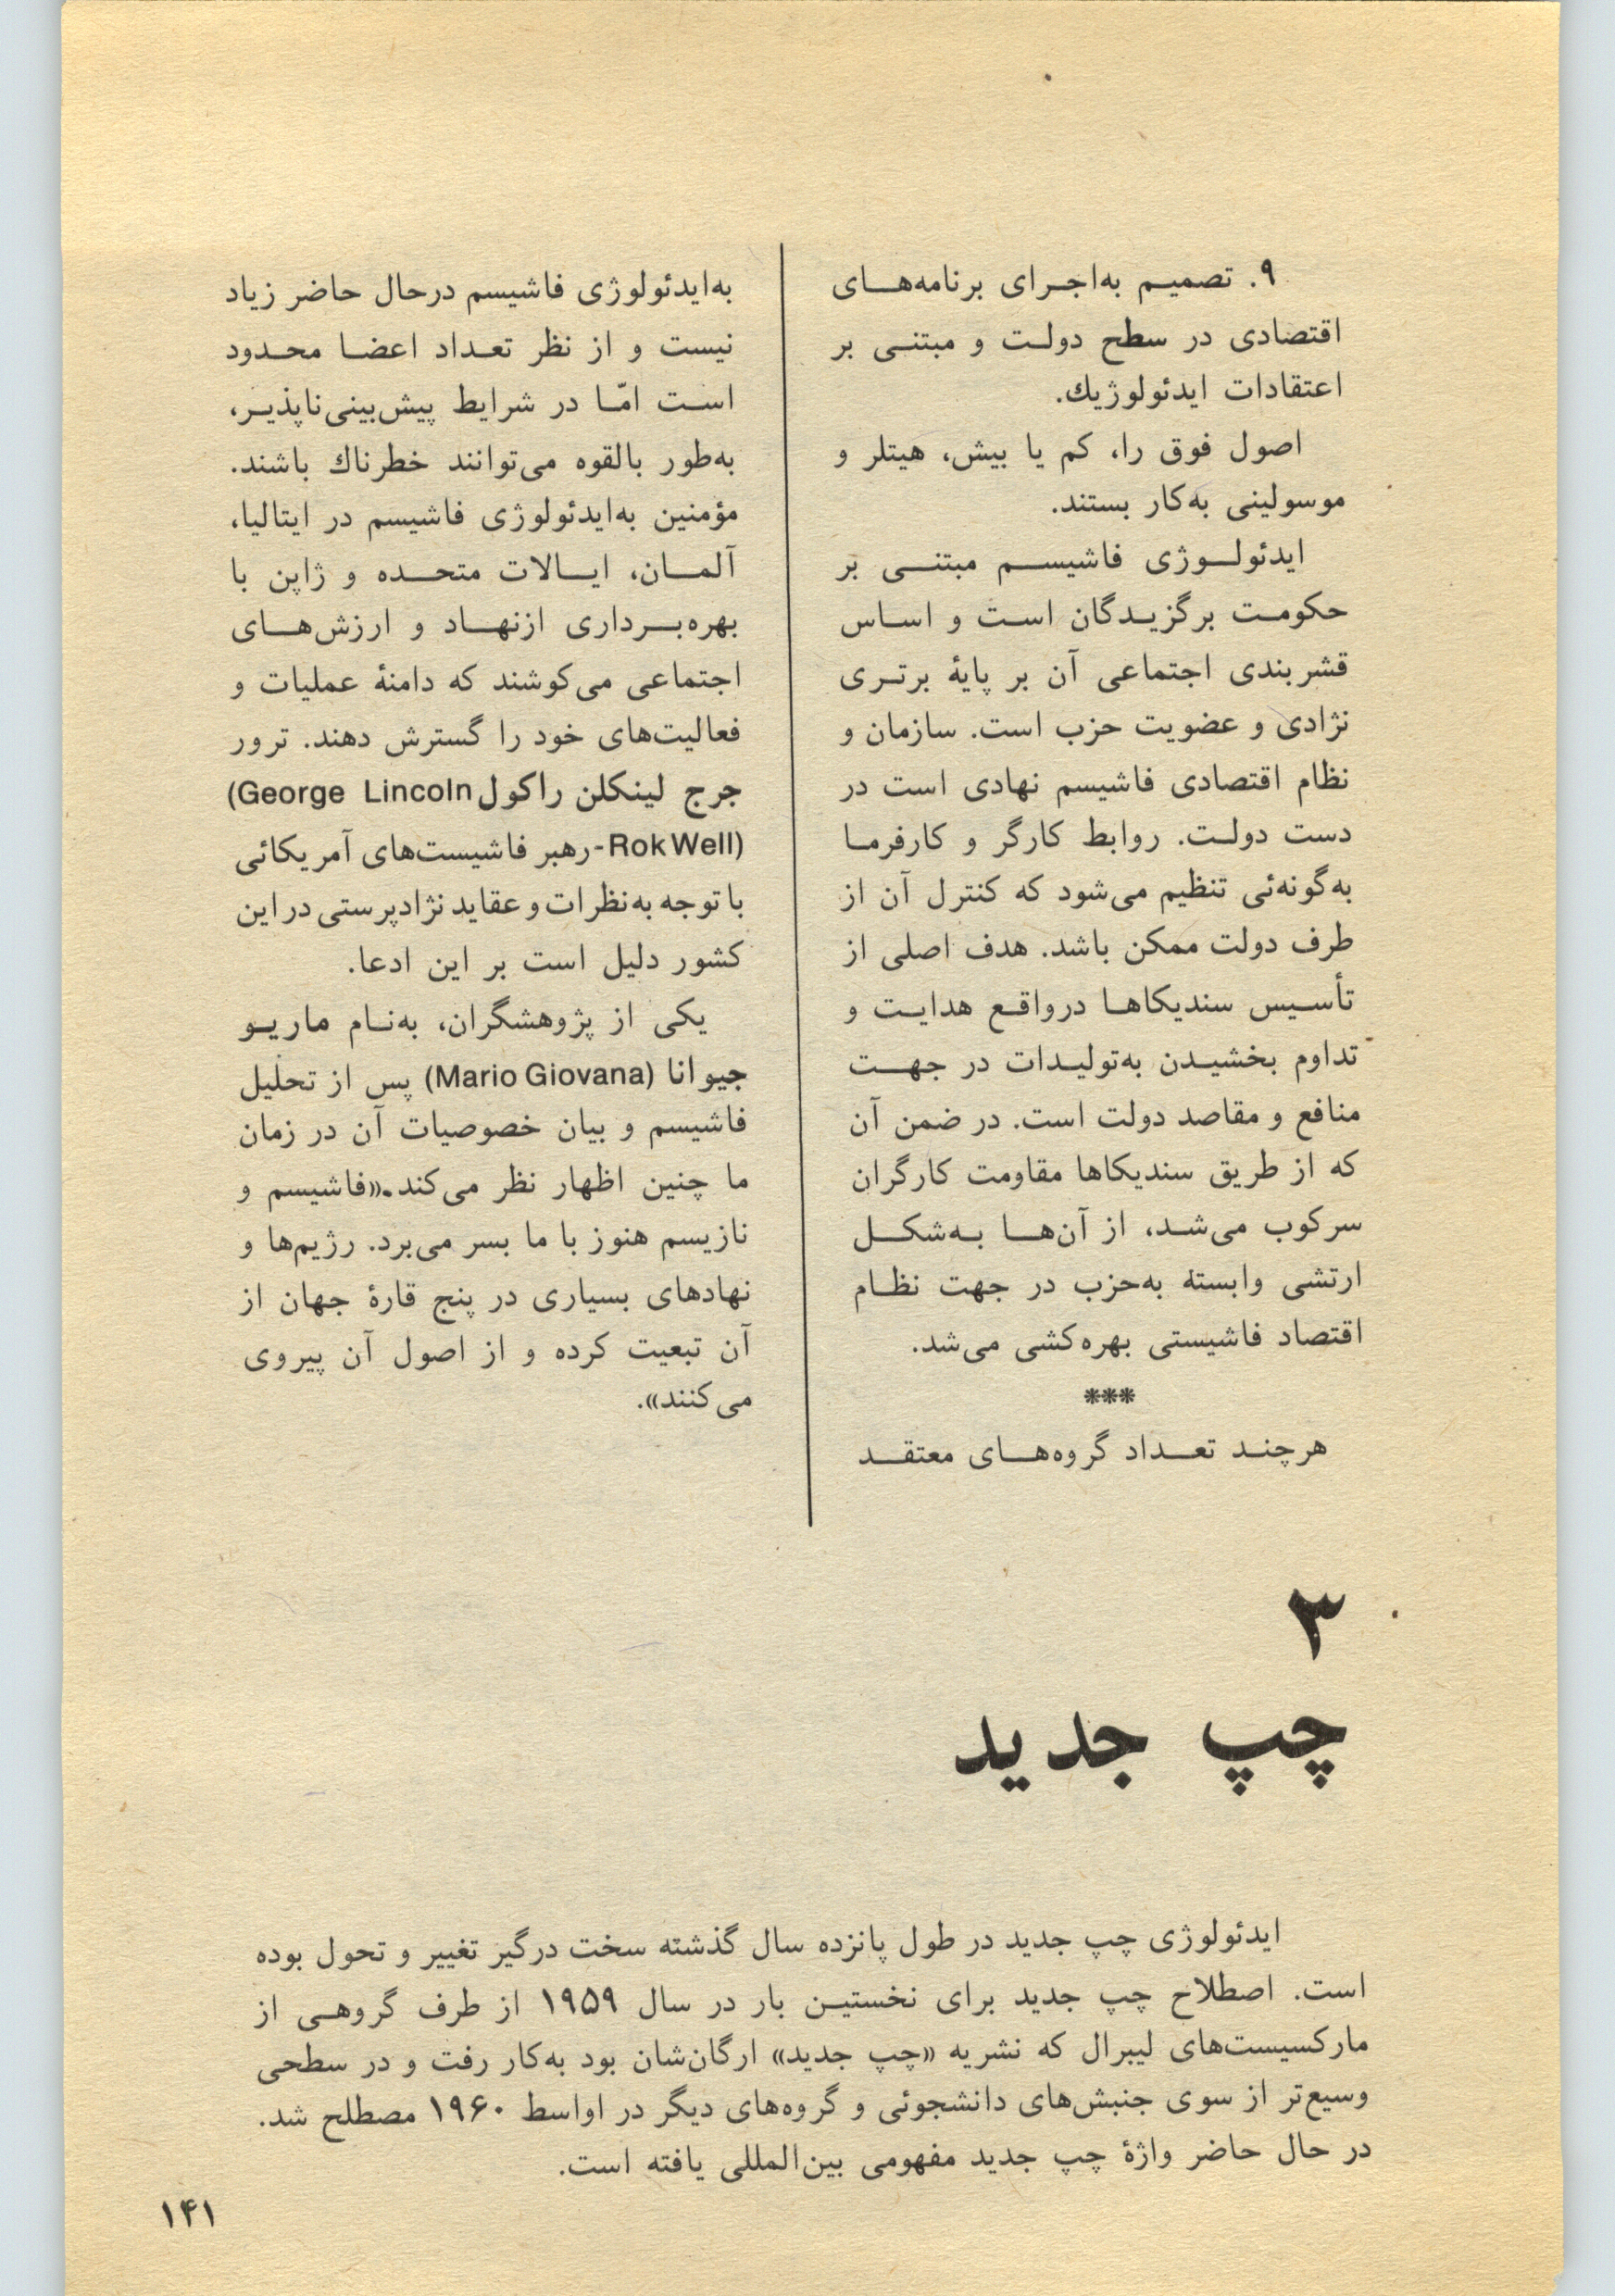 ۹. تصمیم به‌اجرای برنامه‌های
اقتصادی در سطح دولت و مبتنی بر
اعتقادات ایدئولوژیك.
اصول فوق را، کم یا بیش، هیتلر و
موسولینی به‌کار بستند.
ایدئولوژی فاشیسم مبتنی بر
حکومت برگزیدگان است و اساس
قشربندی اجتماعی آن بر پایهٔ برتری
نژادی و عضویت حزب است. سازمان و
نظام اقتصادی فاشیسم نهادی است در
دست دولت. روابط کارگر و کارفرما
به‌گونه‌ئی تنظیم می‌شود که کنترل آن از
طرف دولت ممکن باشد. هدف اصلی از
تأسیس سندیکاها درواقع هدایت و
تداوم بخشیدن به‌تولیدات در جهت
منافع و مقاصد دولت است. در ضمن آن
که از طریق سندیکاها مقاومت کارگران
سرکوب می‌شد، از آن‌ها به‌شکل
ارتشی وابسته به‌حزب در جهت نظام
اقتصاد فاشیستی بهره‌کشی می‌شد.
***
هرچند تعداد گروه‌های معتقد
به‌ایدئولوژی فاشیسم درحال حاضر زیاد
نیست و از نظر تعداد اعضا محدود
است امّا در شرایط پیش‌بینی‌ناپذیر،
به‌طور بالقوه می‌توانند خطرناك باشند.
مؤمنین به‌ایدئولوژی فاشیسم در ایتالیا،
آلمان، ایالات متحده و ژاپن با
بهره‌برداری ازنهاد و ارزش‌های
اجتماعی می‌کوشند که دامنهٔ عملیات و
فعالیت‌های خود را گسترش دهند. ترور
جرج لینکلن راکول (George Lincoln
Rok Well)-رهبر فاشیست‌های آمریکائی
با توجه به‌نظرات و عقاید نژادپرستی در این
کشور دلیل است بر این ادعا.
یکی از پژوهشگران، به‌نام ماریو
جیوانا (Mario Giovana) پس از تحلیل
فاشیسم و بیان خصوصیات آن در زمان
ما چنین اظهار نظر می‌کند.«فاشیسم و
نازیسم هنوز با ما بسر می‌برد. رژیم‌ها و
نهادهای بسیاری در پنج قارهٔ جهان از
آن تبعیت کرده و از اصول آن پیروی
می‌کنند».
۳
چپ جدید
ایدئولوژی چپ جدید در طول پانزده سال گذشته سخت درگیر تغییر و تحول بوده
است. اصطلاح چپ جدید برای نخستین بار در سال ۱۹۵۹ از طرف گروهی از
مارکسیست‌های لیبرال که نشریه «چپ جدید» ارگان‌شان بود به‌کار رفت و در سطحی
وسیع‌تر از سوی جنبش‌های دانشجوئی و گروه‌های دیگر در اواسط ۱۹۶۰ مصطلح شد.
در حال حاضر واژهٔ چپ جدید مفهومی بین‌المللی یافته است.
۱۴۱